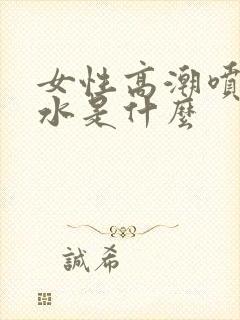 女性高潮噴
水是什麼
誠希